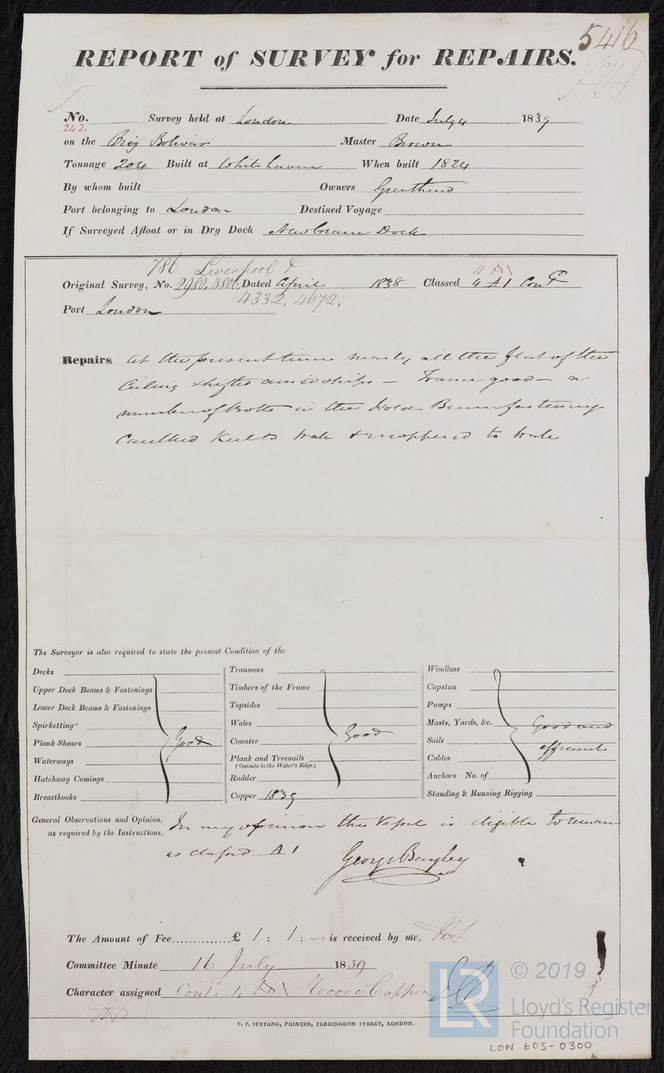 546
REPORT of SURVEY for REPAIRS.
No. 242. Survey held at London Date July 4 1839
on the Brig Bolivar Master Brown
Tonnage 204 Built at White haven When built 1824
By whom built Owners Greathead
Port belonging to London Destined Voyage
If Surveyed Afloat or in Dry Dock New Crane Dock
786 Liverpool &
Original Survey, No. 2980, 3806, Dated April 1838 Classed 4 A1 Contd
4332, 4672,
Port London
Repairs At the present time nearly all the flat of the
Ceiling shifted amidships – Frame good – a
number of bolts in the Hold Beam fastenings
Caulked Keel to Wale & recoppered to Wale
The Surveyor is also required to state the present Condition of the
Decks
Upper Deck Beams & Fastenings
Lower Deck Beams & Fastenings
Spirketting
Plank Shears
Waterways
Hatchway Comings
Breasthooks
Good
Transoms
Timbers of the Frame
Topsides
Wales
Counter
Plank and Treenails
(Outside to the Water's Edge)
Rudder
Copper 1839
Good
Windlass
Capstan
Pumps
Masts, Yards, &c.
Sails
Cables
Anchors No. of
Standing & Running Rigging
Good and
efficient
General Observations and Opinion, In my opinion the Vessel is eligible to remain
as required by the Instructions, as classed A1
George Bayley
The Amount of Fee.............£ 1 : 1 : – is received by me,
Committee Minute 16 July 1839
Character assigned Contd 4 A1 Record Coppered
C. F. SEYFANG, PRINTER, FARRINGDON STREET, LONDON.
© 2019
LR
Lloyd's Register
Foundation
LON 605-0300